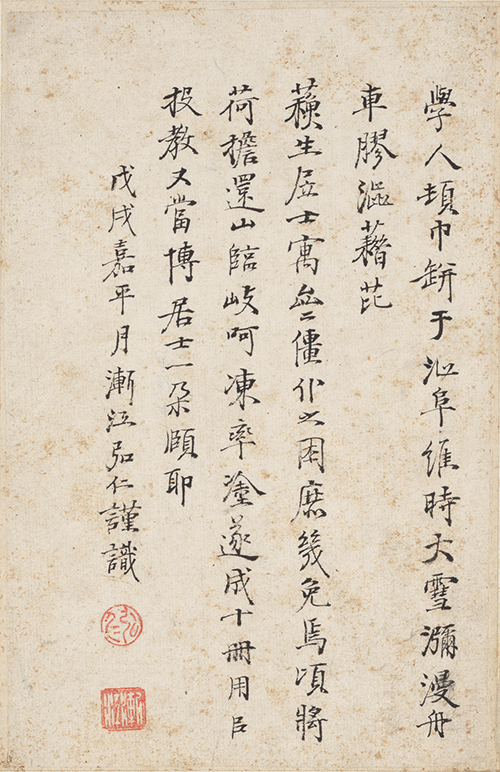 學人頓巾缾于沚阜維時大雪瀰漫舟
車膠澁藉芘
蘋生居士寓僵仆之困庶幾免焉頃將
荷擔還山臨岐呵凍率塗遂成十冊用㠯
投教又當博居士一朵頤耶
戊戌嘉平月漸江弘仁謹識
弘仁
漸江